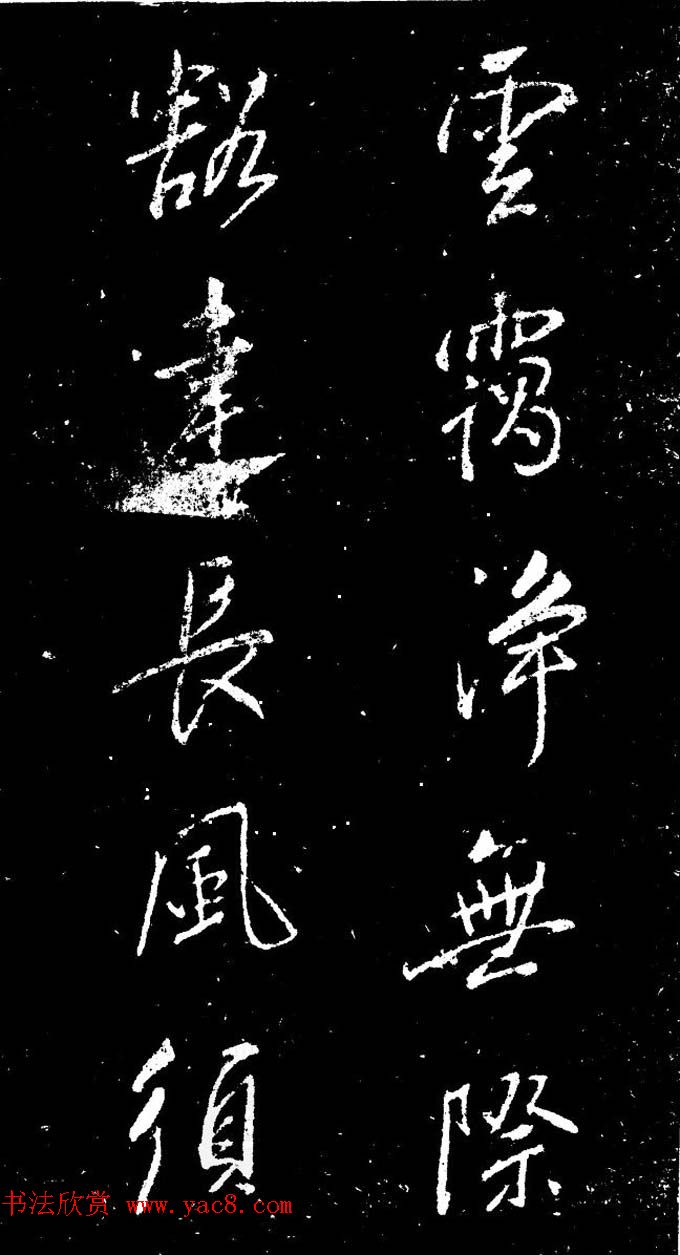 雲靄淨無際
豁達長風須
书法欣赏 www.yac8.com